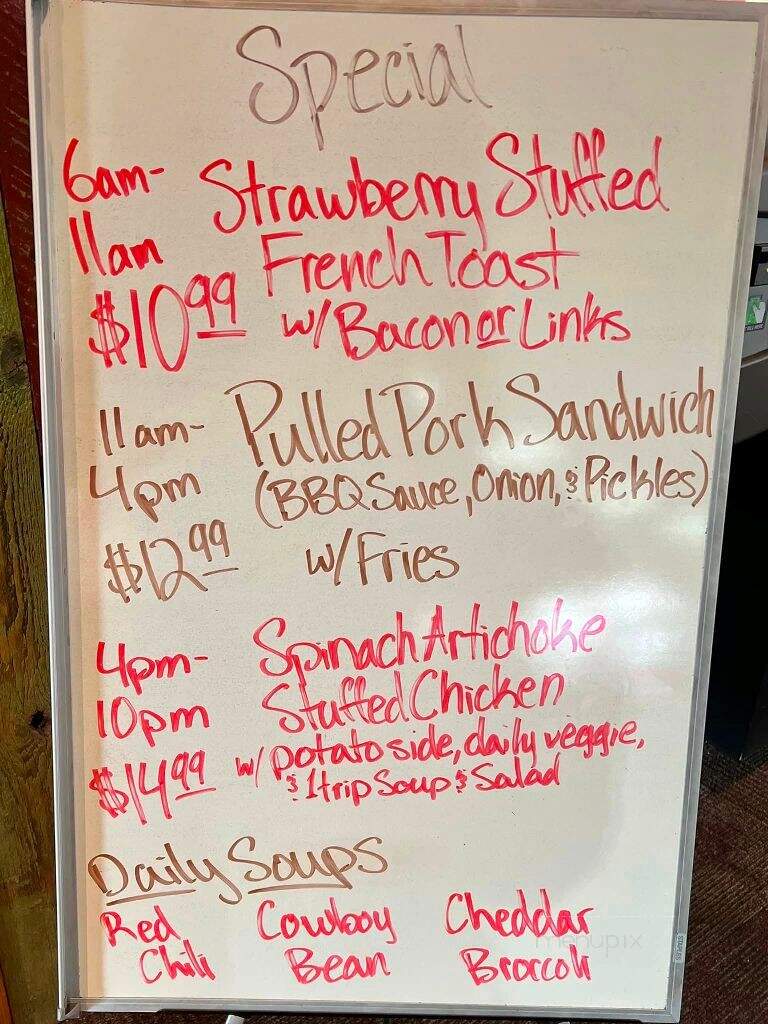 Special
6am- Strawberry Stuffed
11am French Toast
$10.99 w/ Bacon or Links
11am- Pulled Pork Sandwich
4pm (BBQ Sauce, Onion, & Pickles)
$12.99 w/ Fries
4pm- Spinach Artichoke
10pm Stuffed Chicken
$14.99 w/ potato side, daily veggie,
& 1 trip Soup & Salad
Daily Soups
Red Cowboy Cheddar
Chili Bean Broccoli
menupix
STAPLES